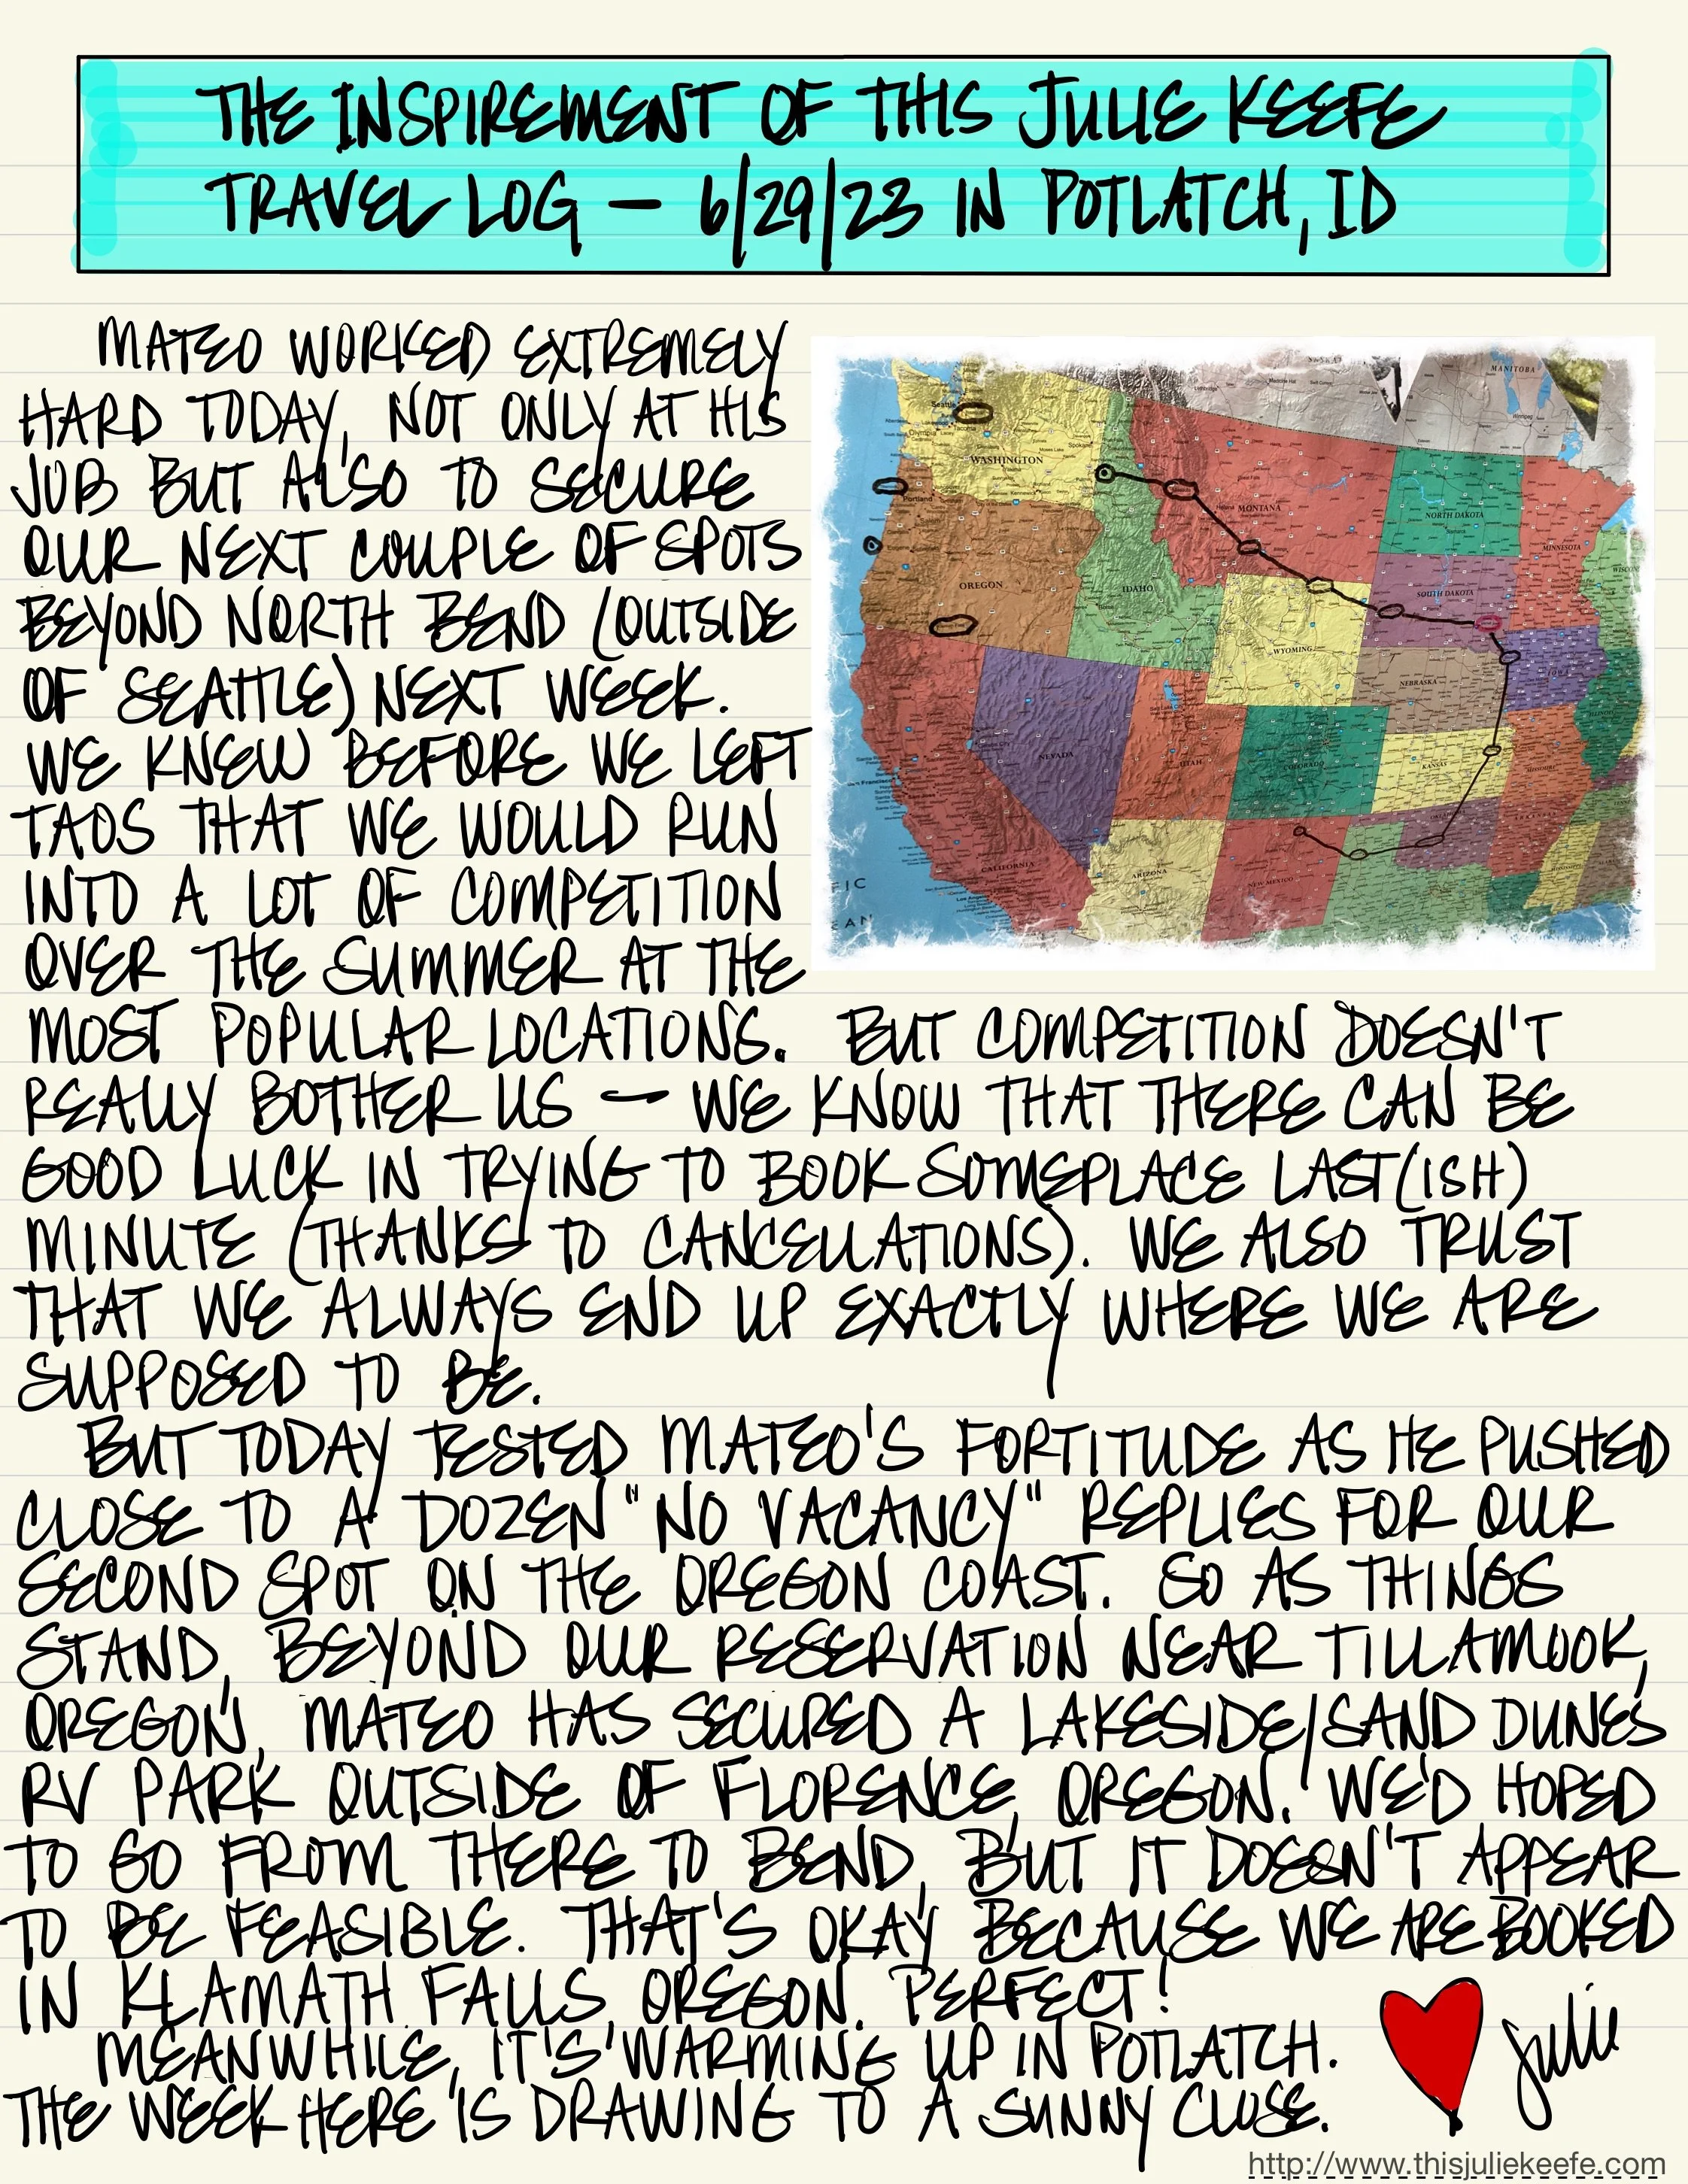 THE INSPIREMENT OF THIS JULIE KEEFE
TRAVEL LOG — 6/29/23 IN POTLATCH, ID
MATEO WORKED EXTREMELY
HARD TODAY, NOT ONLY AT HIS
JOB BUT ALSO TO SECURE
OUR NEXT COUPLE OF SPOTS
BEYOND NORTH BEND (OUTSIDE
OF SEATTLE) NEXT WEEK.
WE KNEW BEFORE WE LEFT
TAOS THAT WE WOULD RUN
INTO A LOT OF COMPETITION
OVER THE SUMMER AT THE
MOST POPULAR LOCATIONS. BUT COMPETITION DOESN'T
REALLY BOTHER US — WE KNOW THAT THERE CAN BE
GOOD LUCK IN TRYING TO BOOK SOMEPLACE LAST(ISH)
MINUTE (THANKS TO CANCELLATIONS). WE ALSO TRUST
THAT WE ALWAYS END UP EXACTLY WHERE WE ARE
SUPPOSED TO BE.
BUT TODAY TESTED MATEO'S FORTITUDE AS HE PUSHED
CLOSE TO A DOZEN "NO VACANCY" REPLIES FOR OUR
SECOND SPOT ON THE OREGON COAST. SO AS THINGS
STAND, BEYOND OUR RESERVATION NEAR TILLAMOOK,
OREGON, MATEO HAS SECURED A LAKESIDE/SAND DUNES
RV PARK OUTSIDE OF FLORENCE, OREGON. WE'D HOPED
TO GO FROM THERE TO BEND, BUT IT DOESN'T APPEAR
TO BE FEASIBLE. THAT'S OKAY BECAUSE WE ARE BOOKED
IN KLAMATH FALLS, OREGON. PERFECT!
MEANWHILE, IT'S WARMING UP IN POTLATCH.
THE WEEK HERE IS DRAWING TO A SUNNY CLOSE.
Julie
http://www.thisjuliekeefe.com
MANITOBA
Seattle
Spokane
WASHINGTON
Portland
MONTANA
NORTH DAKOTA
MINNESOTA
OREGON
IDAHO
SOUTH DAKOTA
WYOMING
NEBRASKA
NEVADA
UTAH
COLORADO
KANSAS
CALIFORNIA
ARIZONA
NEW MEXICO